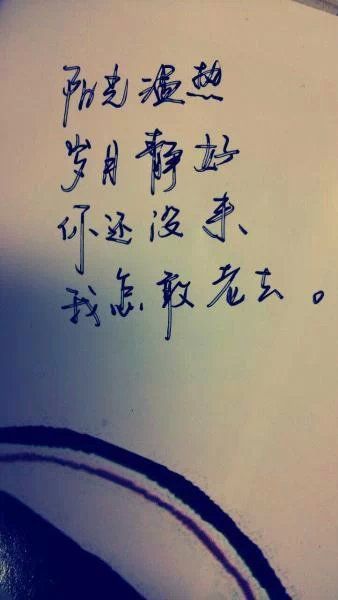 阳光温热
岁月静好
你还没来
我怎敢老去。